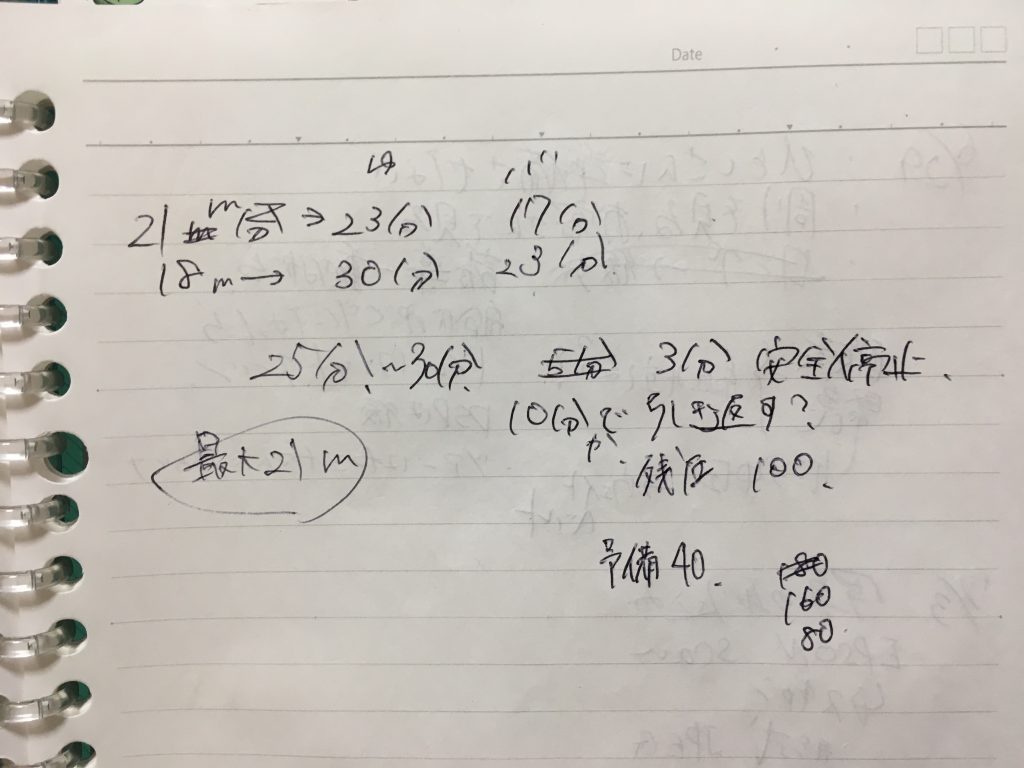 Date
21m → 23(分) 17(分)
18m → 30(分) 23(分)
25(分)~30(分) 5(分) 3(分) 安全停止.
10(分)で引き返す?
か、
最大21m
残圧 100.
予備 40.
180
160
80.